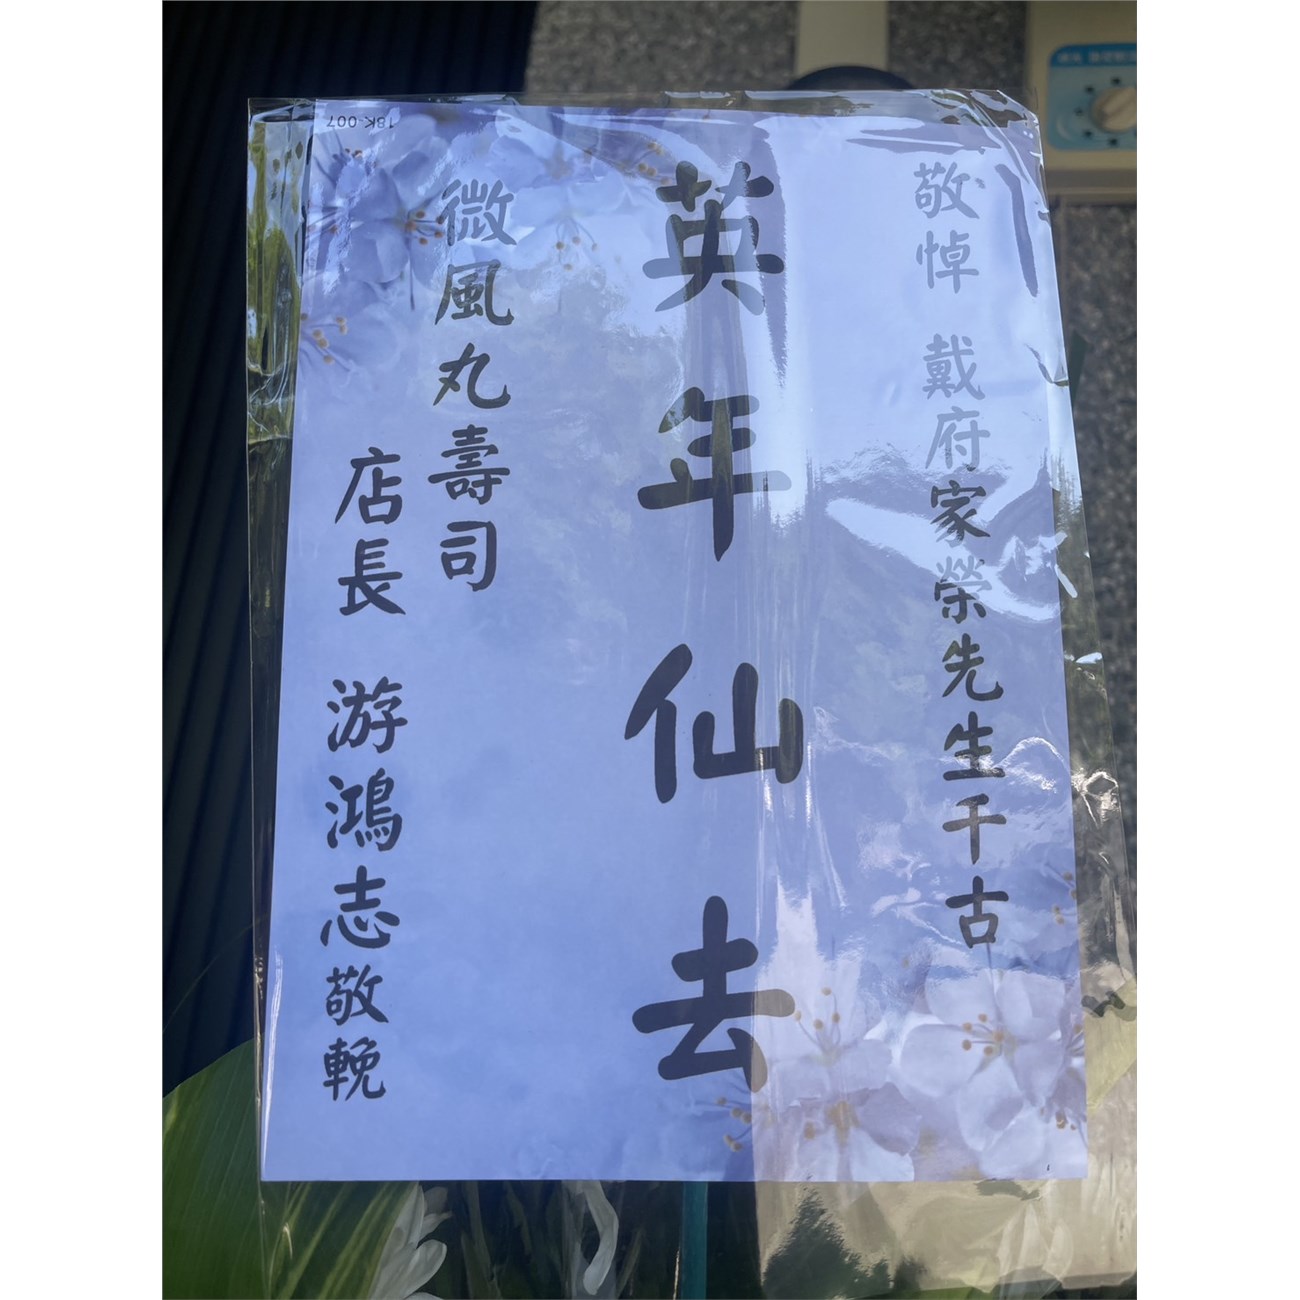 敬悼 戴府家榮先生千古
英年仙去
微風丸壽司
店長 游鴻志敬輓
18K-007